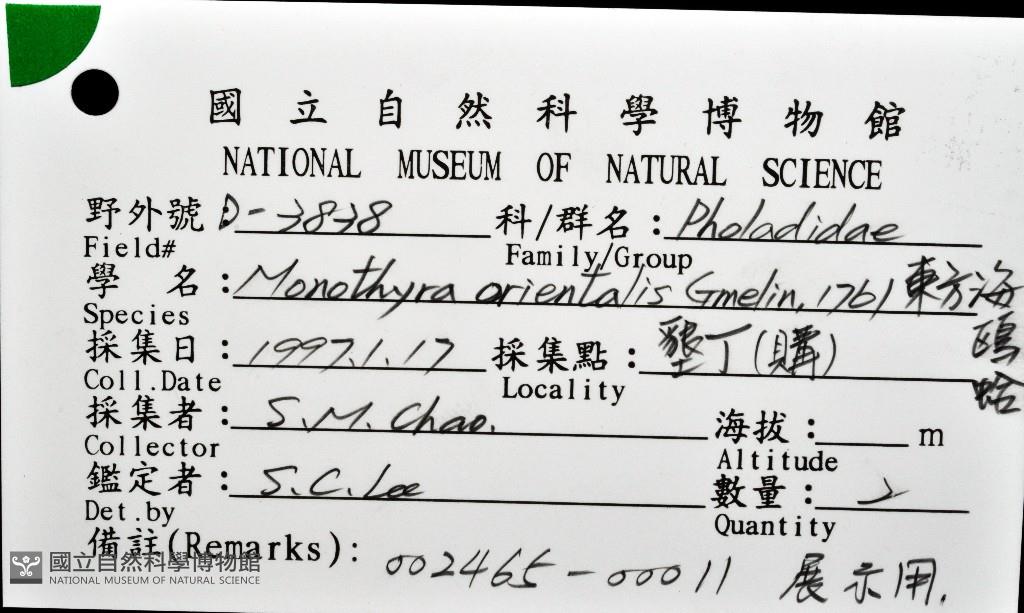 國立自然科學博物館
NATIONAL MUSEUM OF NATURAL SCIENCE
野外號：D-3838 科/群名：Pholadidae
Field# Family/Group
學 名：Monothyra orientalis Gmelin, 1761 東方海鷗蛤
Species
採集日：1997.1.17 採集點：墾丁(購)
Coll.Date Locality
採集者：S.M. Chao. 海拔：____m
Collector Altitude
鑑定者：S.C. Lee 數量：2
Det.by Quantity
備註(Remarks)：002465-00011 展示用.
國立自然科學博物館
NATIONAL MUSEUM OF NATURAL SCIENCE